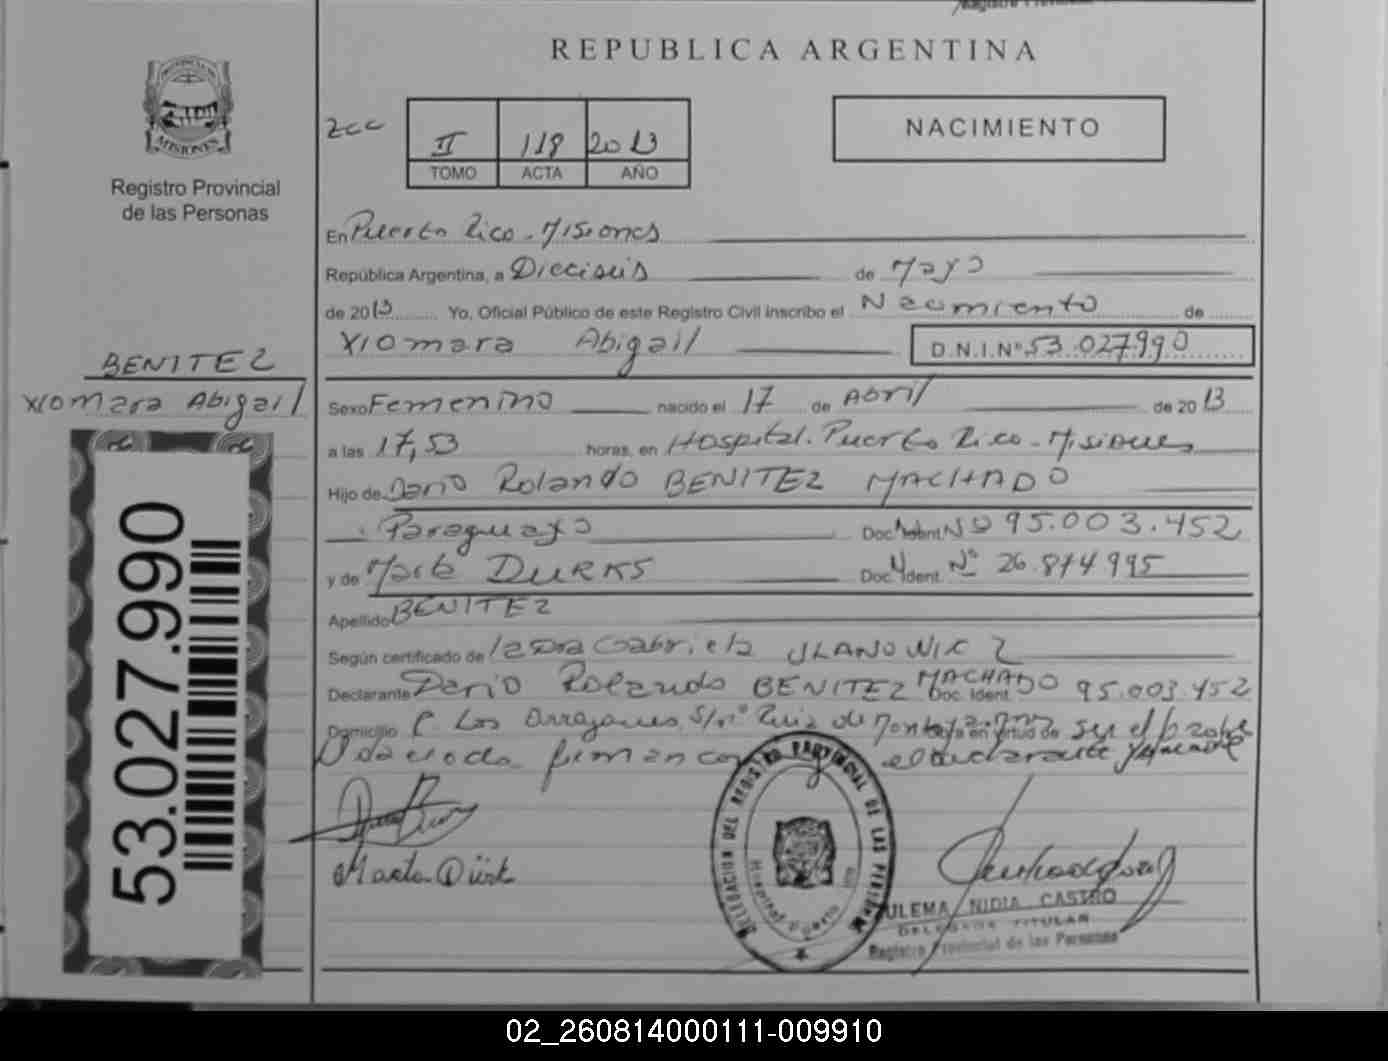 REPUBLICA ARGENTINA
PROVINCIA DE
MISIONES
Registro Provincial
de las Personas
II 118 2013
TOMO ACTA AÑO
NACIMIENTO
En Puerto Rico - Misiones
República Argentina, a Dieciseis de Mayo
de 2013 Yo, Oficial Público de este Registro Civil inscribo el Nacimiento de
Xiomara Abigail D.N.I.Nº 53.027.990
BENITEZ
Xiomara Abigail
Sexo Femenino nacido el 17 de Abril de 2013
a las 17,53 horas, en Hospital. Puerto Rico - Misiones
Hijo de Dario Rolando BENITEZ MACHADO
Paraguayo Doc. Ident. Nº 95.003.452
y de Marta DURKS Doc. Ident. Nº 26.874.995
Apellido BENITEZ
Según certificado de Gabriela
Declarante Dario Rolando BENITEZ MACHADO Doc. Ident. 95.003.452
Domicilio C. Los Arrayanes S/nº Ruiz de Montoya en virtud de ser el padre
firman el declarante y madre
53.027.990
DELEGACION DEL REGISTRO PROVINCIAL DE LAS PERSONAS
Hospital Puerto Rico
ZULEMA NIDIA CASTRO
DELEGADA TITULAR
Registro Provincial de las Personas
02_260814000111-009910